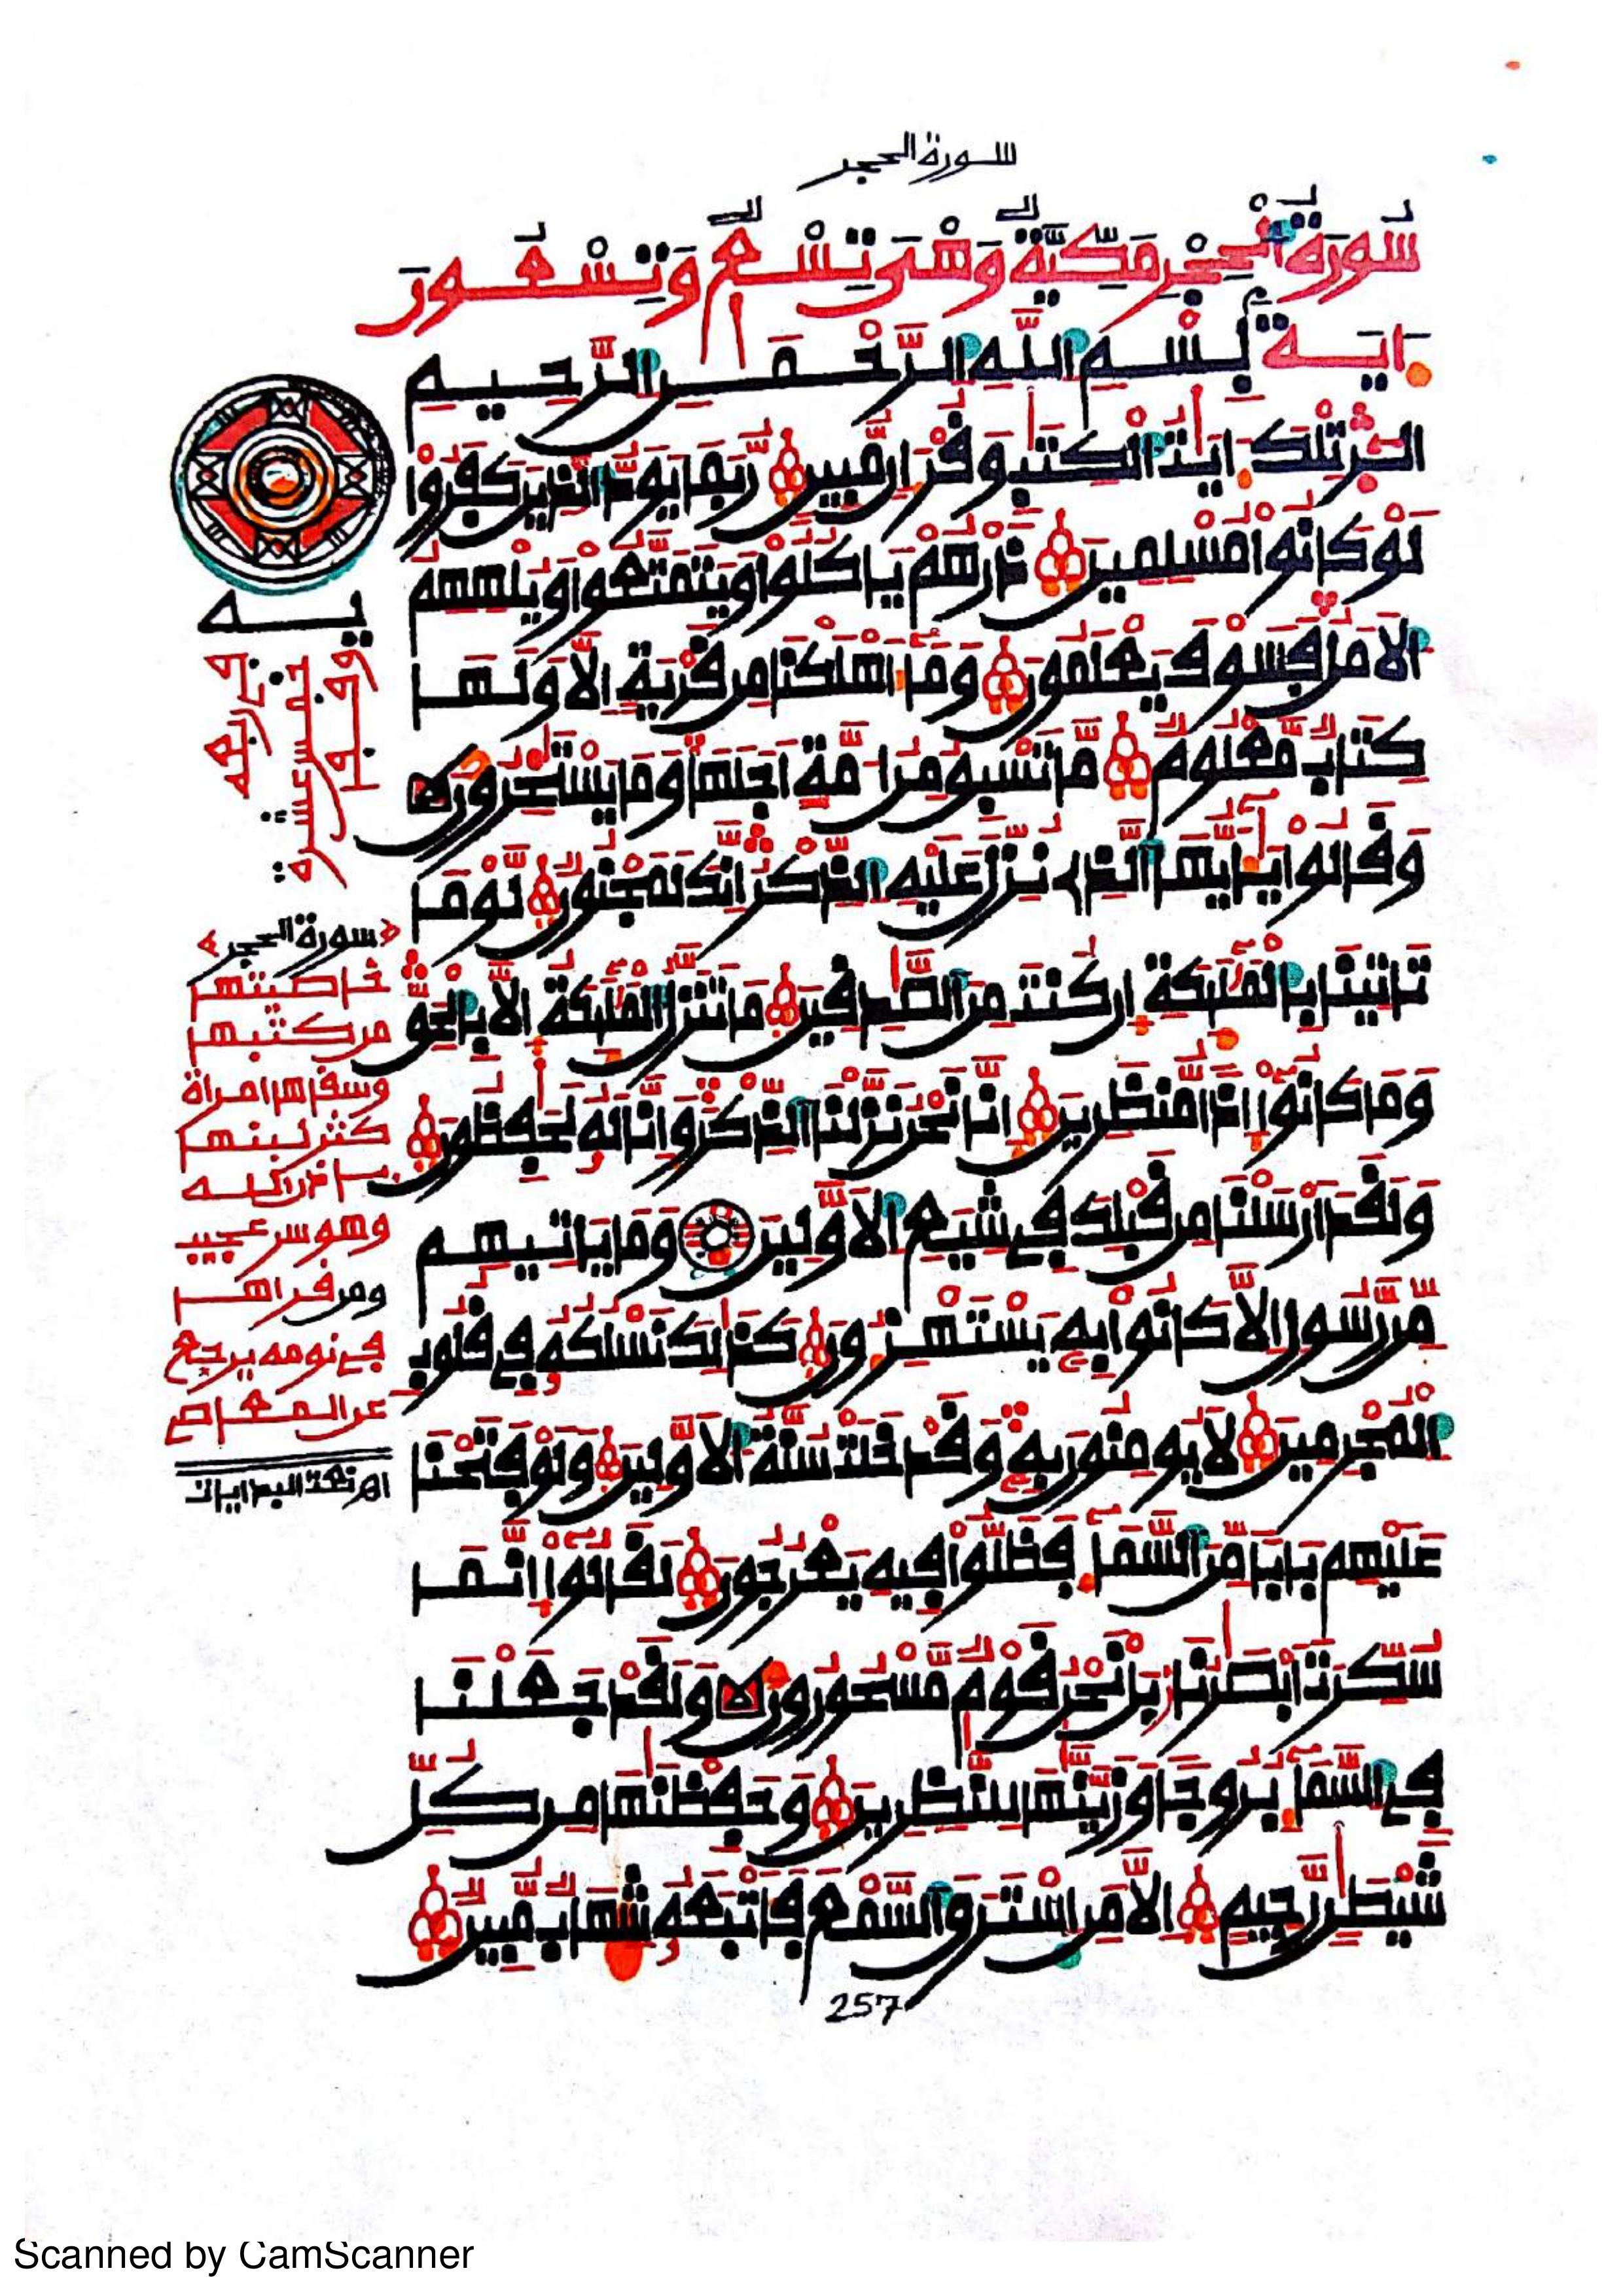 سورة الحجر
سُورَةُ الْحِجْرِ مَكِّيَّةٌ وَهْىَ تِسْعٌ وَتِسْعُونَ
ايَة بِسْمِ اللَّهِ الرَّحْمَنِ الرَّحِيمِ
الر تِلْكَ ءَايَتُ الْكِتَبِ وَقُرْءَانٍ مُّبِينٍ رُّبَمَا يَوَدُّ الذِينَ كَفَرُوا
لَوْ كَانُوا مُسْلِمِينَ ذَرْهُمْ يَاكُلُوا وَيَتَمَتَّعُوا وَيُلْهِهِمُ
الَامَلُ فَسَوْفَ يَعْلَمُونَ وَمَا أَهْلَكْنَا مِن قَرْيَةٍ الَّا وَلَهَا
كِتَابٌ مَّعْلُومٌ مَّا تَسْبِقُ مِنُ امَّةٍ اَجَلَهَا وَمَا يَسْتَخِرُونَ
وَقَالُوا يَأَيُّهَا الذِى نُزِّلَ عَلَيْهِ الذِّكْرُ إِنَّكَ لَمَجْنُونٌ لَّوْمَا
تَاتِينَا بِالْمَلَئِكَةِ إِن كُنتَ مِنَ الصَّدِقِينَ مَا تَنَزَّلُ الْمَلَئِكَةُ إِلَّا بِالْحَقِّ
وَمَا كَانُوا إِذًا مُّنظَرِينَ إِنَّا نَحْنُ نَزَّلْنَا الذِّكْرَ وَإِنَّا لَهُ لَحَفِظُونَ
وَلَقَدَ ارْسَلْنَا مِن قَبْلِكَ فِى شِيَعِ الَاوَّلِينَ وَمَا يَاتِيهِم
مِّن رَّسُولٍ الَّا كَانُوا بِهِ يَسْتَهْزِءُونَ كَذَلِكَ نَسْلُكُهُ فِى قُلُوبِ
الْمُجْرِمِينَ لَا يُومِنُونَ بِهِ وَقَدْ خَلَتْ سُنَّةُ الَاوَّلِينَ وَلَوْ فَتَحْنَا
عَلَيْهِم بَابًا مِّنَ السَّمَاءِ فَظَلُّوا فِيهِ يَعْرُجُونَ لَقَالُوا إِنَّمَا
سُكِّرَتَ ابْصَرُنَا بَلْ نَحْنُ قَوْمٌ مَّسْحُورُونَ وَلَقَدْ جَعَلْنَا
فِى السَّمَاءِ بُرُوجًا وَزَيَّنَّهَا لِلنَّظِرِينَ وَحَفِظْنَهَا مِن كُلِّ
شَيْطَنٍ رَّجِيمٍ الَّا مَنِ اسْتَرَقَ السَّمْعَ فَأَتْبَعَهُ شِهَابٌ مُّبِينٌ
سورة الحجر
خاصيتها
من كتبها
وسقاها امراة
كثر لبنها
باذن الله
وهو سر عجيب
ومن قراها
فى نومه يرجع
عن المعاص
257
Scanned by CamScanner